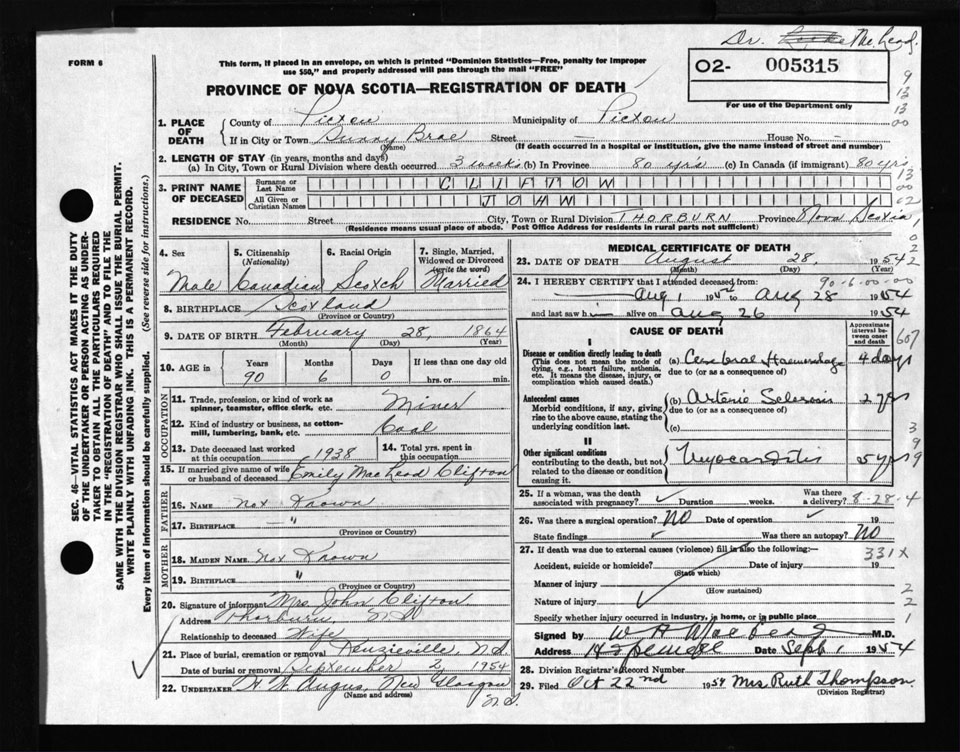 Dr. McLeod.
FORM 6
This form, if placed in an envelope, on which is printed "Dominion Statistics—Free, penalty for improper
use $50," and properly addressed will pass through the mail "FREE"
02- 005315
For use of the Department only
PROVINCE OF NOVA SCOTIA—REGISTRATION OF DEATH
1. PLACE OF DEATH
County of Pictou Municipality of Pictou
If in City or Town Sunny Brae Street — House No. —
(Name) (If death occurred in a hospital or institution, give the name instead of street and number)
2. LENGTH OF STAY (in years, months and days)
(a) In City, Town or Rural Division where death occurred 3 weeks (b) In Province 80 yrs (c) In Canada (if immigrant) 80 yrs
3. PRINT NAME OF DECEASED
Surname or Last Name CLIFTON
All Given or Christian Names JOHN
RESIDENCE No. Street City, Town or Rural Division THORBURN Province Nova Scotia
(Residence means usual place of abode. Post Office Address for residents in rural parts not sufficient)
4. Sex
Male
5. Citizenship (Nationality)
Canadian
6. Racial Origin
Scotch
7. Single, Married, Widowed or Divorced (write the word)
Married
8. BIRTHPLACE Scotland
(Province or Country)
9. DATE OF BIRTH February 28, 1864
(Month) (Day) (Year)
10. AGE in
Years Months Days If less than one day old
90 6 0 hrs. or min.
OCCUPATION
11. Trade, profession, or kind of work as spinner, teamster, office clerk, etc. Miner
12. Kind of industry or business, as cotton-mill, lumbering, bank, etc. Coal
13. Date deceased last worked at this occupation 1938
14. Total yrs. spent in this occupation
15. If married give name of wife or husband of deceased Emily MacLeod Clifton
FATHER
16. NAME Not Known
17. BIRTHPLACE — "
(Province or Country)
MOTHER
18. MAIDEN NAME Not Known
19. BIRTHPLACE "
(Province or Country)
20. Signature of informant Mrs John Clifton
Address Thorburn, N S
Relationship to deceased Wife
21. Place of burial, cremation or removal Kenzieville, N.S.
Date of burial or removal September 2, 1954
22. UNDERTAKER H W Angus, New Glasgow
(Name and address) N.S.
MEDICAL CERTIFICATE OF DEATH
23. DATE OF DEATH August 28, 1954
(Month) (Day) (Year)
24. I HEREBY CERTIFY that I attended deceased from
90-6-00-00
Aug 1 19 to Aug 28 1954
and last saw h alive on Aug 26 1954
CAUSE OF DEATH
Approximate interval between onset and death
I
Disease or condition directly leading to death
(This does not mean the mode of dying, e.g., heart failure, asthenia, etc. It means the disease, injury, or complication which caused death.
(a) Cerebral Haemorrhage 4 days
due to (or as a consequence of)
Antecedent causes
Morbid conditions, if any, giving rise to the above cause, stating the underlying condition last.
(b) Arterio Sclerosis 2 yrs
due to (or as a consequence of)
(c)
II
Other significant conditions
contributing to the death, but not related to the disease or condition causing it.
Myocarditis 5 yrs
25. If a woman, was the death associated with pregnancy? Duration weeks. Was there a delivery? 8-28-4
26. Was there a surgical operation? NO Date of operation 19
State findings Was there an autopsy? NO
27. If death was due to external causes (violence) fill in also the following: 331X
Accident, suicide or homicide? Date of injury 19
(State which)
Manner of injury
(How sustained)
Nature of injury
Specify whether injury occurred in industry, in home, or in public place
Signed by M.D.
Address Hopewell Date Sept 1 1954
28. Division Registrar's Record Number
29. Filed Oct 22nd 1954 Mrs Ruth Thompson
(Division Registrar)
SEC. 46—VITAL STATISTICS ACT MAKES IT THE DUTY
OF THE UNDERTAKER OR PERSON ACTING AS UNDER-
TAKER TO OBTAIN ALL THE PARTICULARS REQUIRED
IN THE "REGISTRATION OF DEATH" AND TO FILE THE
SAME WITH THE DIVISION REGISTRAR WHO SHALL ISSUE THE BURIAL PERMIT.
WRITE PLAINLY WITH UNFADING INK. THIS IS A PERMANENT RECORD.
Every item of information should be carefully supplied. (See reverse side for instructions.)